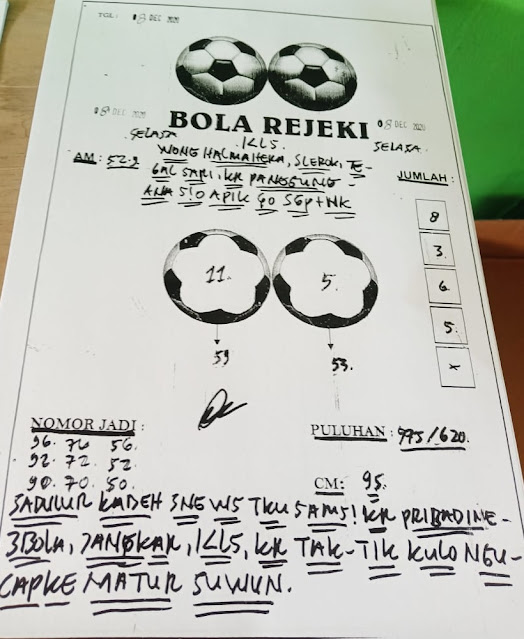 TGL : 08 DEC 2020
08 DEC 2020
08 DEC 2020
BOLA REJEKI
SELASA
KLS.
SELASA.
AM : 52.9
WONG HALMAHERA, SLEROK, TE-
GAL SARI, KR PANGGUNG-
ANA 5!0 APIK GO SGP+HK
JUMLAH :
8
3.
6
5.
x
11.
5.
59
53.
NOMOR JADI :
96. 76 56.
92. 72. 52
90. 70. 50.
PULUHAN : 975/620.
CM: 95.
SADULUR KABEH SNEWS TKU SAMS! KR PRIBADINE-
3BOLA, JANGKAR, KLS, KR TAK-TIK KULO NGU-
CAPKE MATUR SUWUN.